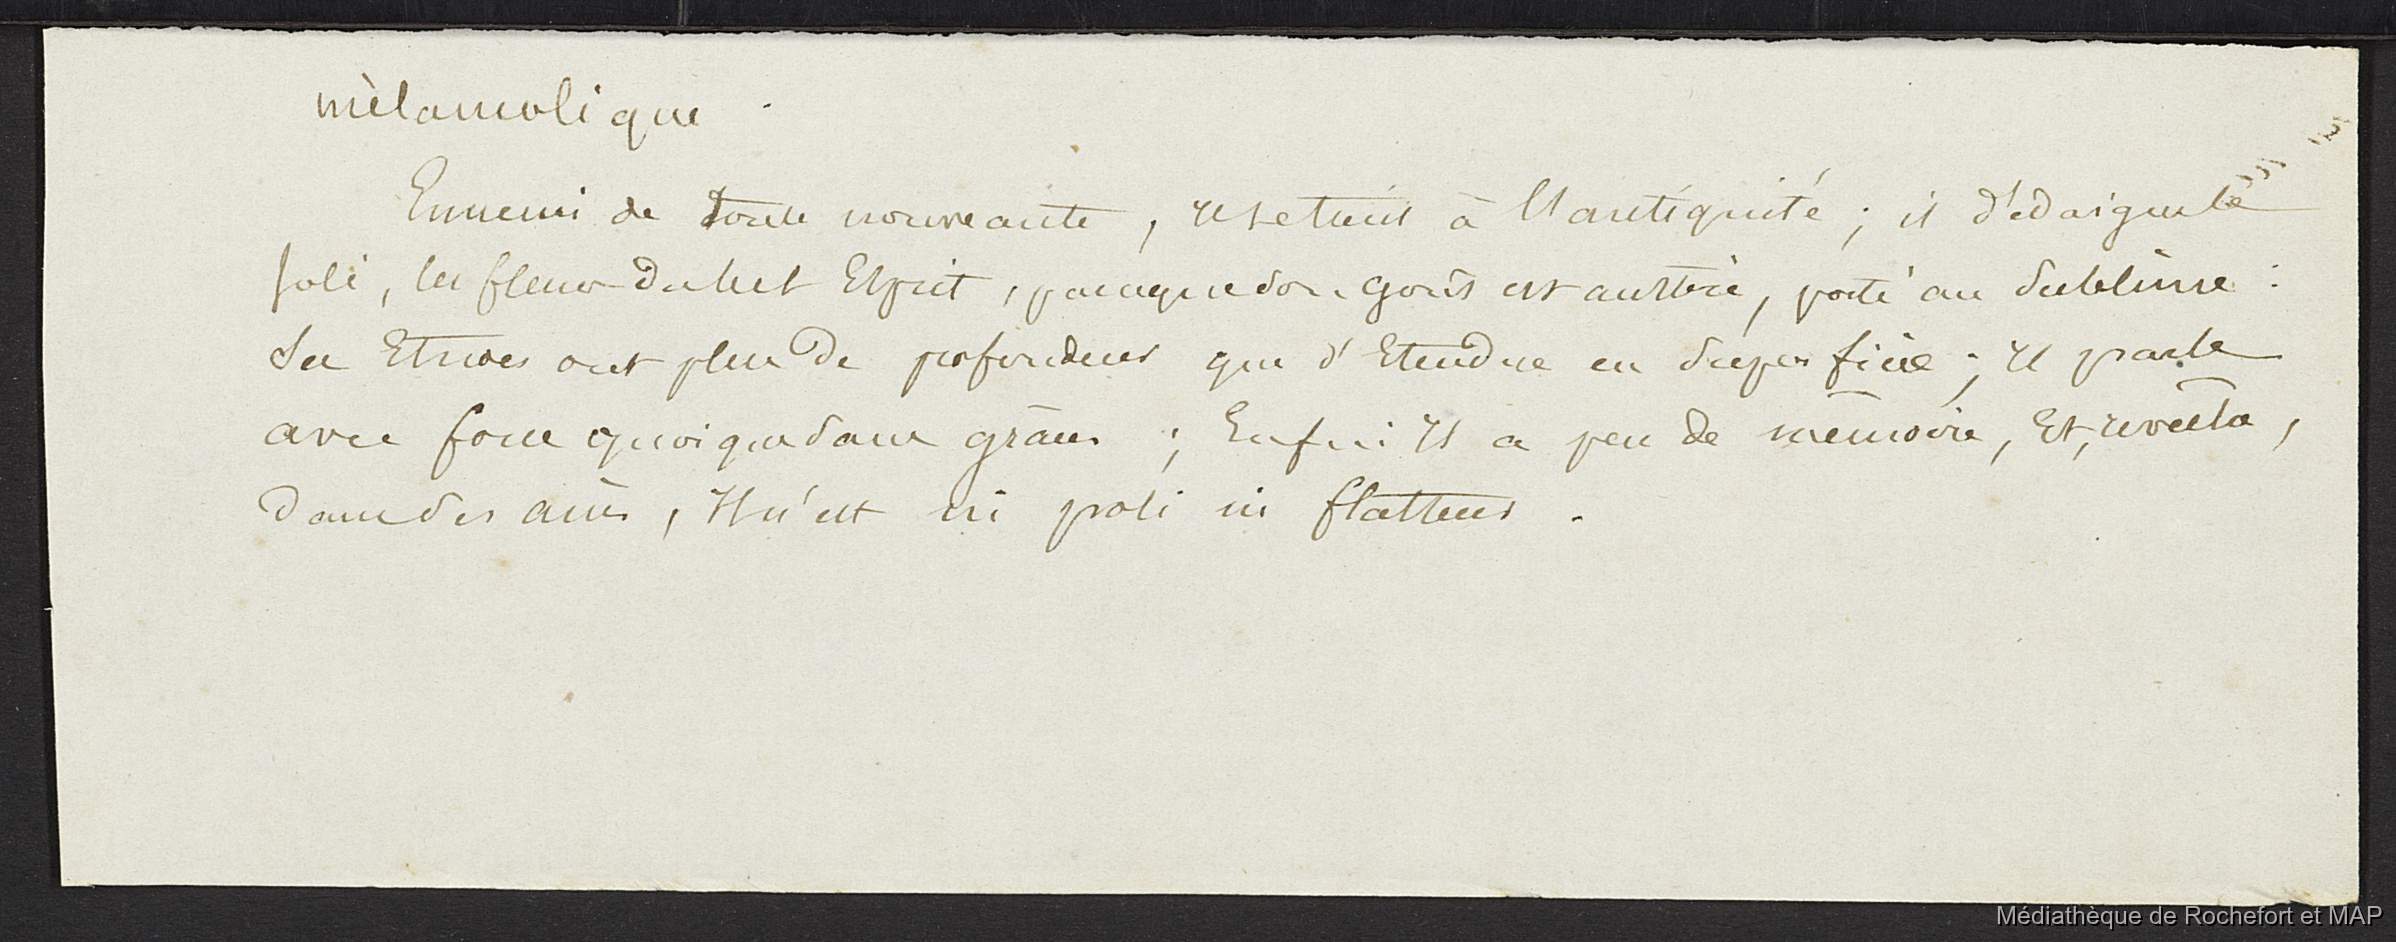 mèlancolique.
Ennemi de toute nouveauté, il se tient à l'antiquité ; il d'édaigne le
joli, les fleurs du bel Esprit, parceque son goût est austère, porté au sublime :
Ses Etudes ont plus de profondeur que d'Etendue en superficie ; il parle
avec force quoique sans grâces ; Enfin il a peu de mémoire, Et,
dans ses airs, Il n'est ni poli ni flatteur.
Médiathèque de Rochefort et MAP